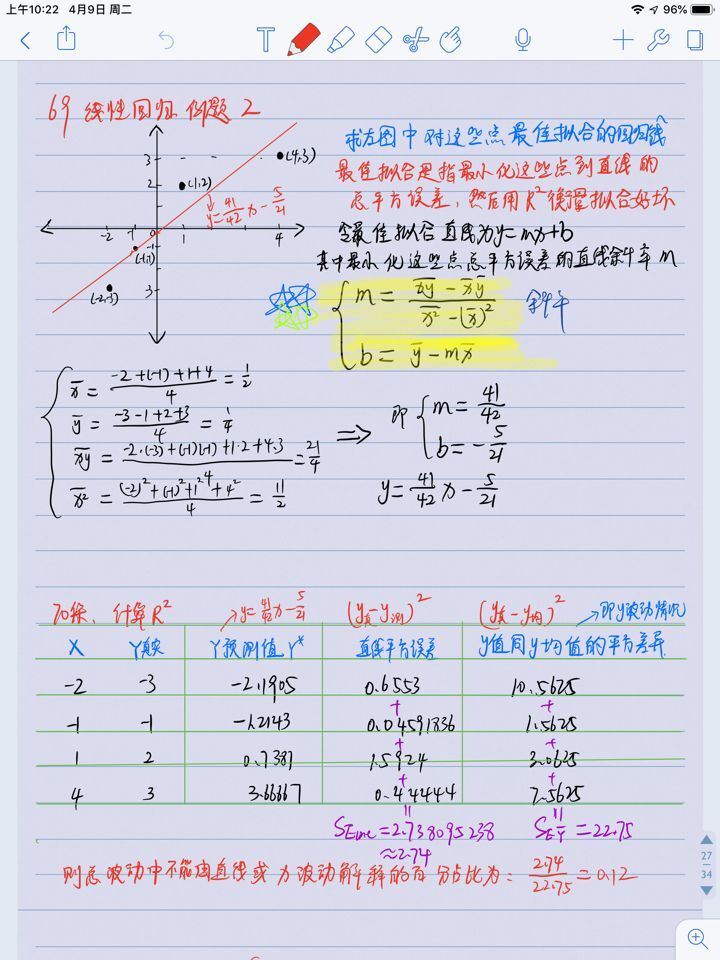 上午10:22 4月9日 周二
96%
T
69 线性回归 例题 2
求左图中对这些点最佳拟合的回归线
最佳拟合是指最小化这些点到直线的
总平方误差，然后用 R² 衡量拟合好坏
令最佳拟合直线为 y = mx+b
其中最小化这些点总平方误差的直线斜率 m
3
(4,3)
2
(1,2)
y=41/42 x - 5/21
-2 -1 0 1 4
-1
(-1,-1)
(-2,-3)
3
m = (x̅y̅ - x̅ y̅) / (x²̅ - (x̅)²) 斜率
b = y̅ - mx̅
x̅ = (-2+(-1)+1+4)/4 = 1/2
y̅ = (-3-1+2+3)/4 = 1/4
x̅y̅ = (-2·(-3)+(-1)(-1)+1·2+4·3)/4 = 21/4
x²̅ = ((-2)²+(-1)²+1²+4²)/4 = 11/2
⇒ 即 m = 41/42
b = - 5/21
y = 41/42 x - 5/21
70续、计算R² →y=41/42 x - 5/21 (y真-y测)² (y真-y均)² →即y波动情况
X Y真实 Y预测值 Y* 直线平方误差 y值同y均值的平方差异
-2 -3 -2.1905 0.6553 10.5625
+ +
-1 -1 -1.2143 0.04591836 1.5625
+ +
1 2 0.7381 1.5924 3.0625
+ +
4 3 3.66667 0.44444 7.5625
SEline = 2.738095238 SEy̅ = 22.75
≈2.74
则总波动中不能由直线或x波动解释的百分占比为： 2.74/22.75 = 0.12
27
34